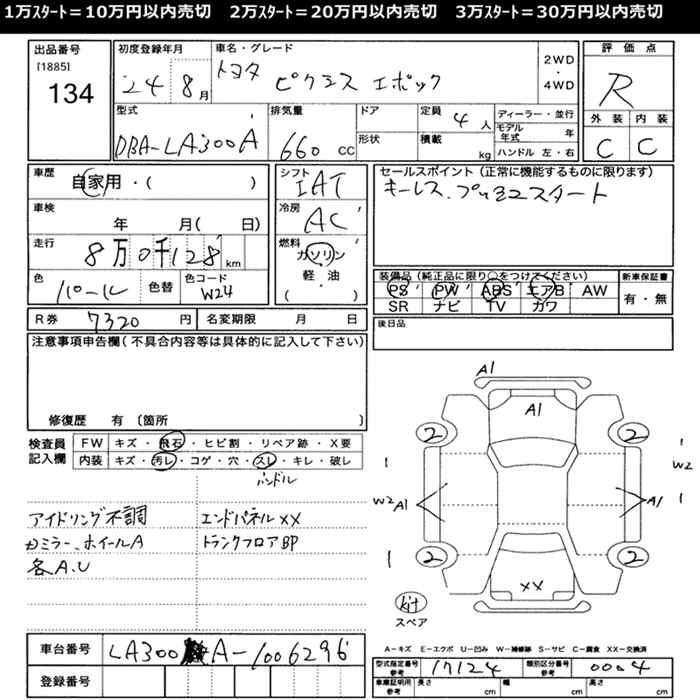 1万スタート＝10万円以内売切　2万スタート＝20万円以内売切　3万スタート＝30万円以内売切
出品番号
[1885]
134
初度登録年月
24 8月
車名・グレード
トヨタ ピクシス エポック
2WD
・
4WD
評価点
R
外装 内装
C C
型式
DBA-LA300A
排気量
660 CC
ドア
形状
定員
4人
積載
kg
ディーラー・並行
モデル年式 年
ハンドル 左・右
車歴
自家用・( )
車検
年 月( 日)
走行
8万0千128km
色
パール
色替
色コード
W24
シフト
IAT
冷房
AC
燃料
ガソリン
軽・油
( )
セールスポイント(正常に機能するものに限ります)
キーレス、プッシュスタート
装備品(純正品に限り○をつけてください)
PS PW ABS エアB AW
SR ナビ TV カワ
新車保証書
有・無
R券 7320円
名変期限 月 日
後日品
注意事項申告欄(不具合内容等は具体的に記入して下さい)
修復歴 有 〔箇所 〕
検査員
記入欄
FW キズ・飛石・ヒビ割・リペア跡・X要
内装 キズ・汚レ・コゲ・穴・スレ・キレ・破レ
ハンドル
アイドリング不調
カミラー、ホイールA
各A.U
エンドパネルXX
トランクフロアBP
A1
A1
2 2
W2 A1
A1
W2
2 2
XX
スペア
A－キズ E－エクボ U－凹み W－補修跡 S－サビ C－腐食 XX－交換済
車台番号
LA300A-1006296
登録番号
型式指定番号
参考
17124
類別区分番号
参考
0004
車庫証明用
参考
長さ cm
幅 cm
高さ cm